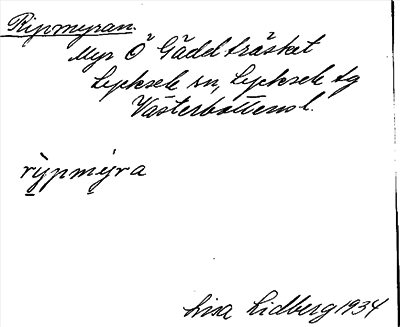 Ripmyran.
Myr Ö Gäddträsket
Lycksele sn, Lycksele tg
Västerbottens l.
rypmyra
Lisa Lidberg 1934